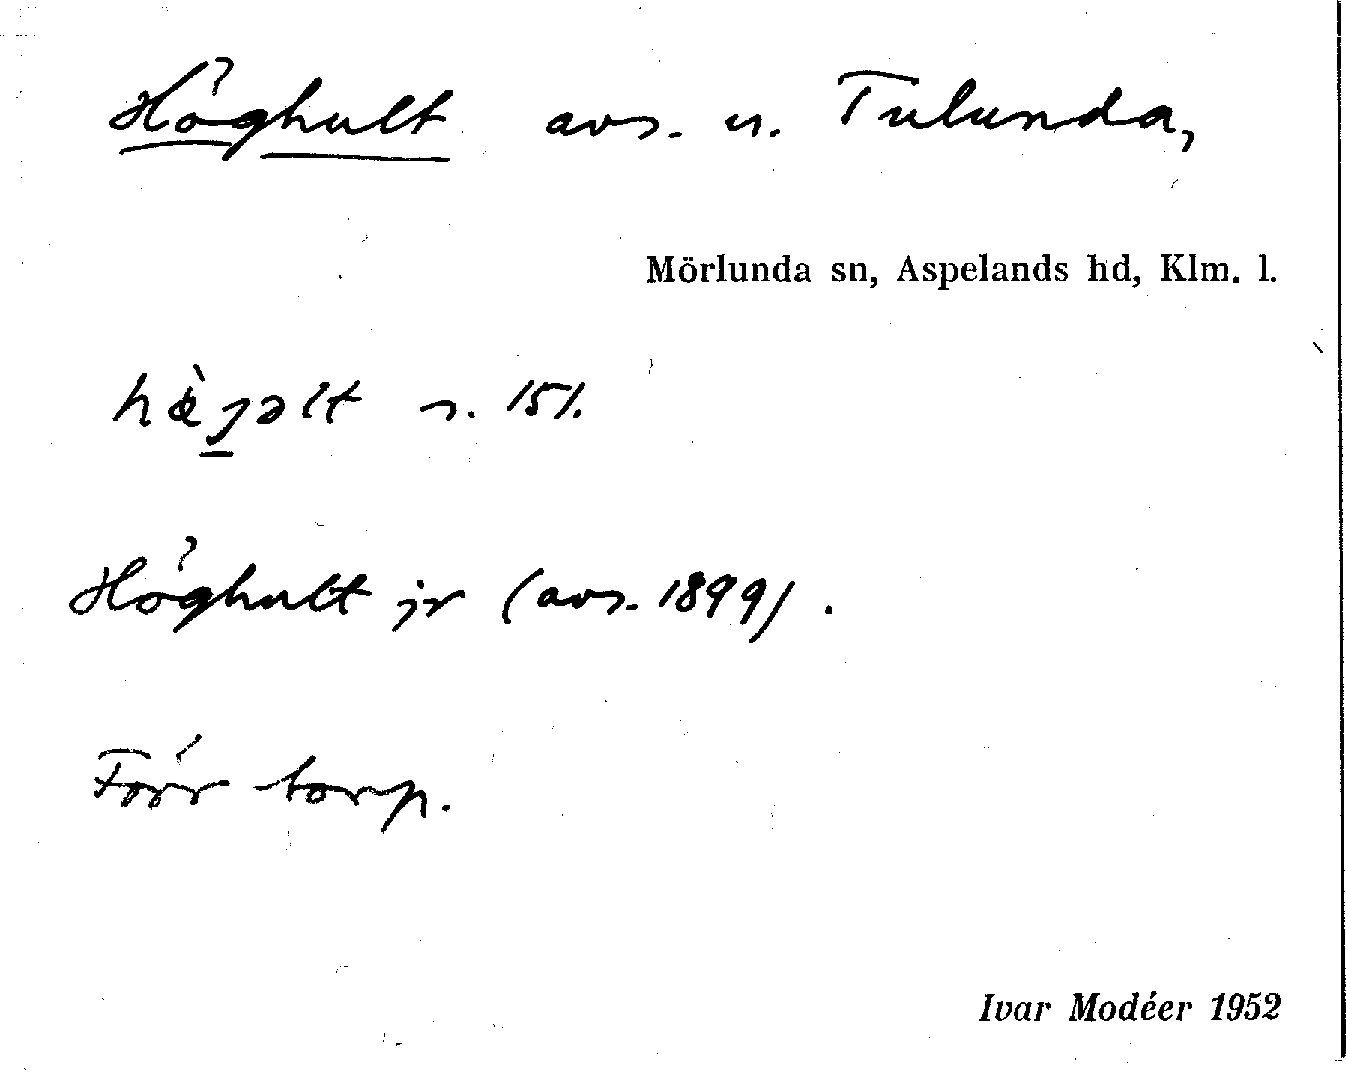 Höghult avs. u. Tulunda,
Mörlunda sn, Aspelands hd, Klm. l.
hœ̀gəlt s. 151.
Höghult jr (avs. 1899).
Förr torp.
Ivar Modéer 1952